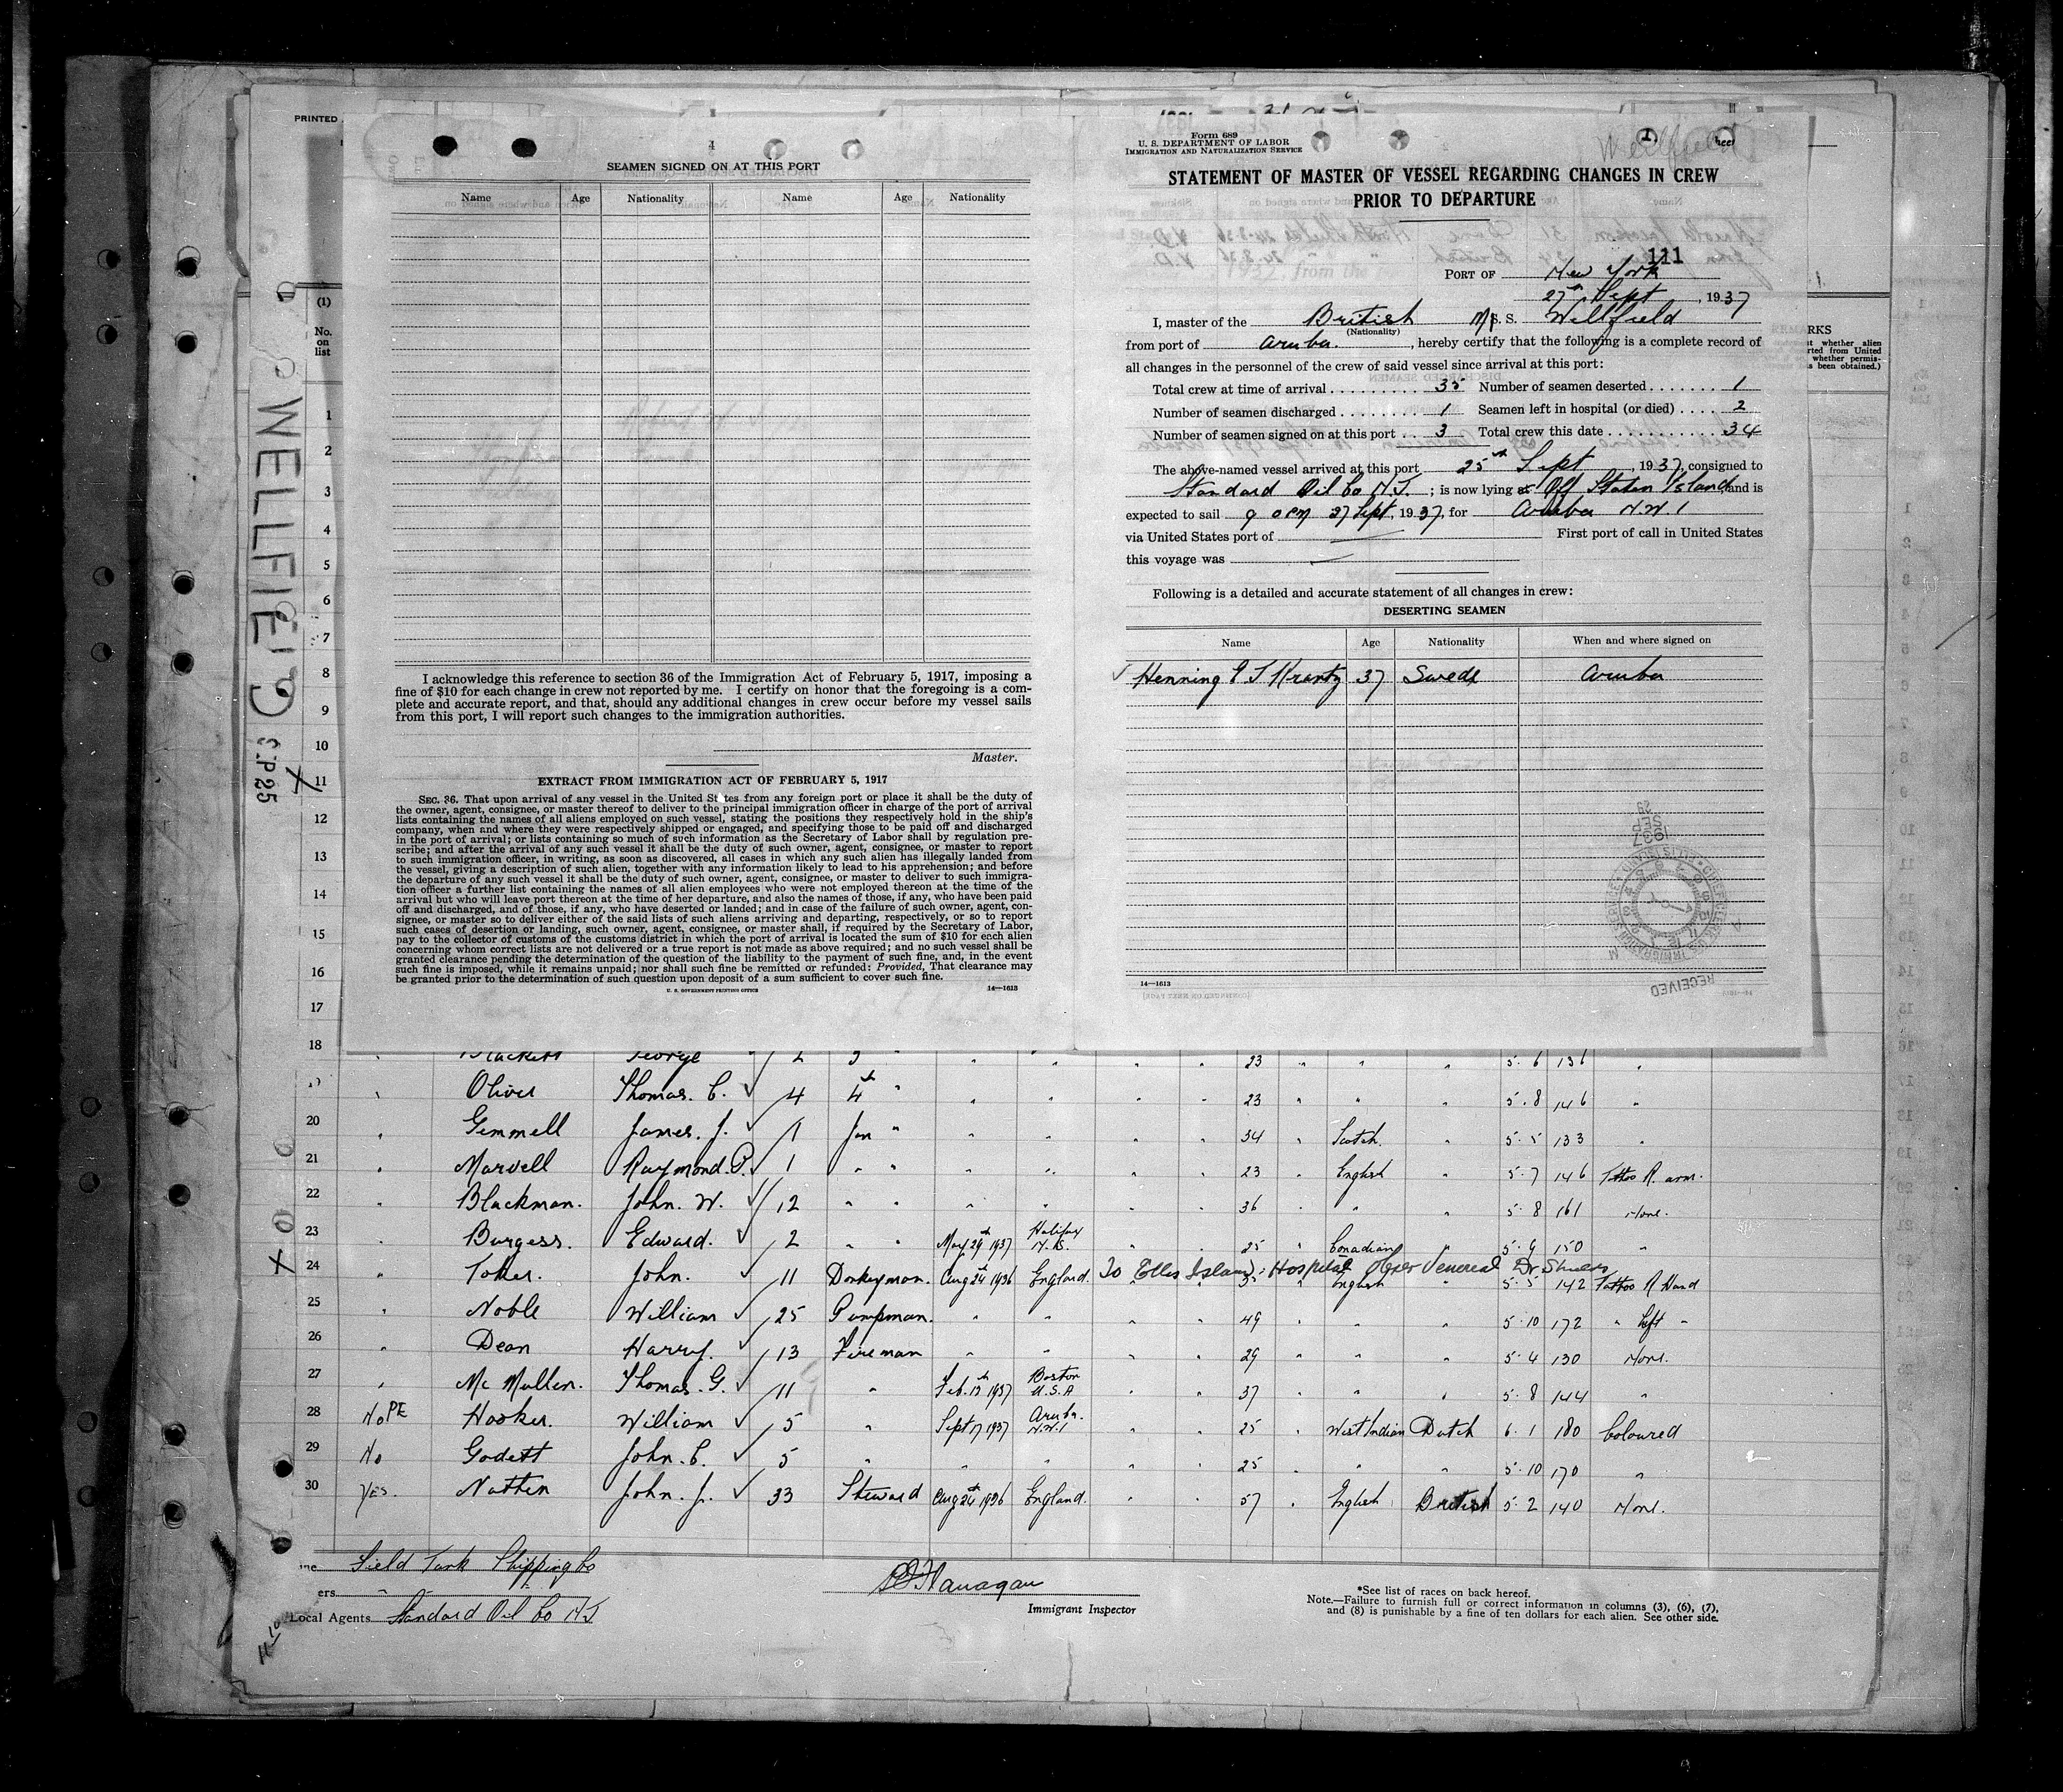 PRINTED
4
SEAMEN SIGNED ON AT THIS PORT
Name Age Nationality Name Age Nationality
I acknowledge this reference to section 36 of the Immigration Act of February 5, 1917, imposing a
fine of $10 for each change in crew not reported by me. I certify on honor that the foregoing is a com-
plete and accurate report, and that, should any additional changes in crew occur before my vessel sails
from this port, I will report such changes to the immigration authorities.
Master.
EXTRACT FROM IMMIGRATION ACT OF FEBRUARY 5, 1917
SEC. 36. That upon arrival of any vessel in the United States from any foreign port or place it shall be the duty of
the owner, agent, consignee, or master thereof to deliver to the principal immigration officer in charge of the port of arrival
lists containing the names of all aliens employed on such vessel, stating the positions they respectively hold in the ship's
company, when and where they were respectively shipped or engaged, and specifying those to be paid off and discharged
in the port of arrival; or lists containing so much of such information as the Secretary of Labor shall by regulation pre-
scribe; and after the arrival of any such vessel it shall be the duty of such owner, agent, consignee, or master to report
to such immigration officer, in writing, as soon as discovered, all cases in which any such alien has illegally landed from
the vessel, giving a description of such alien, together with any information likely to lead to his apprehension; and before
the departure of any such vessel it shall be the duty of such owner, agent, consignee, or master to deliver to such immigra-
tion officer a further list containing the names of all alien employees who were not employed thereon at the time of the
arrival but who will leave port thereon at the time of her departure, and also the names of those, if any, who have been paid
off and discharged, and of those, if any, who have deserted or landed; and in case of the failure of such owner, agent, con-
signee, or master so to deliver either of the said lists of such aliens arriving and departing, respectively, or so to report
such cases of desertion or landing, such owner, agent, consignee, or master shall, if required by the Secretary of Labor,
pay to the collector of customs of the customs district in which the port of arrival is located the sum of $10 for each alien
concerning whom correct lists are not delivered or a true report is not made as above required; and no such vessel shall be
granted clearance pending the determination of the question of the liability to the payment of such fine, and, in the event
such fine is imposed, while it remains unpaid; nor shall such fine be remitted or refunded: Provided, That clearance may
be granted prior to the determination of such question upon deposit of a sum sufficient to cover such fine.
U. S. GOVERNMENT PRINTING OFFICE 14—1613
Form 689
U. S. DEPARTMENT OF LABOR
IMMIGRATION AND NATURALIZATION SERVICE
Wellfield
STATEMENT OF MASTER OF VESSEL REGARDING CHANGES IN CREW
PRIOR TO DEPARTURE
111
PORT OF New York
27th Sept, 1937
I, master of the British M/S. S. Wellfield
(Nationality)
from port of Aruba., hereby certify that the following is a complete record of
all changes in the personnel of the crew of said vessel since arrival at this port:
Total crew at time of arrival 35 Number of seamen deserted 1
Number of seamen discharged 1 Seamen left in hospital (or died) 2
Number of seamen signed on at this port 3 Total crew this date 34
The above-named vessel arrived at this port 25th Sept, 1937, consigned to
Standard Oil Co N.J.; is now lying at Off Staten Island and is
expected to sail 9 pm 27 Sept, 1937, for Aruba N.W.I
via United States port of First port of call in United States
this voyage was
Following is a detailed and accurate statement of all changes in crew:
DESERTING SEAMEN
Name Age Nationality When and where signed on
Henning Krantz 37 Swede Aruba
14—1613
1937
SEP
RECEIVED
(1)
No.
on
list
WELLFIELD
S.P 25
1
2
3
4
5
6
7
8
9
10
11
12
13
14
15
16
17
18 Blackett George 2 3 " 23 5.6 136
19 Oliver Thomas. C. 4 4th " 23 5.8 146
20 Gemmell James. J. 1 Jun " 34 Scotch. 5.5 133
21 Marvell Raymond. P. 1 " " 23 English 5.7 146 Tattoo R. arm.
22 Blackman. John. W. 12 " " 36 " 5 8 161 None.
23 Burgess. Edward. 2 " " May 29th 1937 Halifax N.S. 25 Canadian 5.9 150 "
24 Toker. John. 11 Donkeyman. Aug 24th 1936 England. To Ellis Island Hospital Venereal English 5.5 142 Tattoo R Hand
25 Noble William 25 Pumpman. " " 49 " 5.10 172 " Left "
26 Dean Harry. 13 Fireman " " 29 " 5.4 130 None.
27 Mc Mullen. Thomas. G. 11 " Feb. 13th 1937 Boston U.S.A 37 " 5.8 144 "
28 No PE Hooker. William 5 " Sept 17 1937 Aruba. N.W.I 25 West Indian Dutch 6.1 180 Coloured
29 No Godett John. C. 5 " " " 25 " " 5.10 170 "
30 Yes. Nathen John. J. 33 Steward Aug 24th 1936 England. 57 English British 5.2 140 None.
Field Tank Shipping Co
ers "
Local Agents Standard Oil Co N.J
Flanagan
Immigrant Inspector
*See list of races on back hereof.
Note.—Failure to furnish full or correct information in columns (3), (6), (7),
and (8) is punishable by a fine of ten dollars for each alien. See other side.